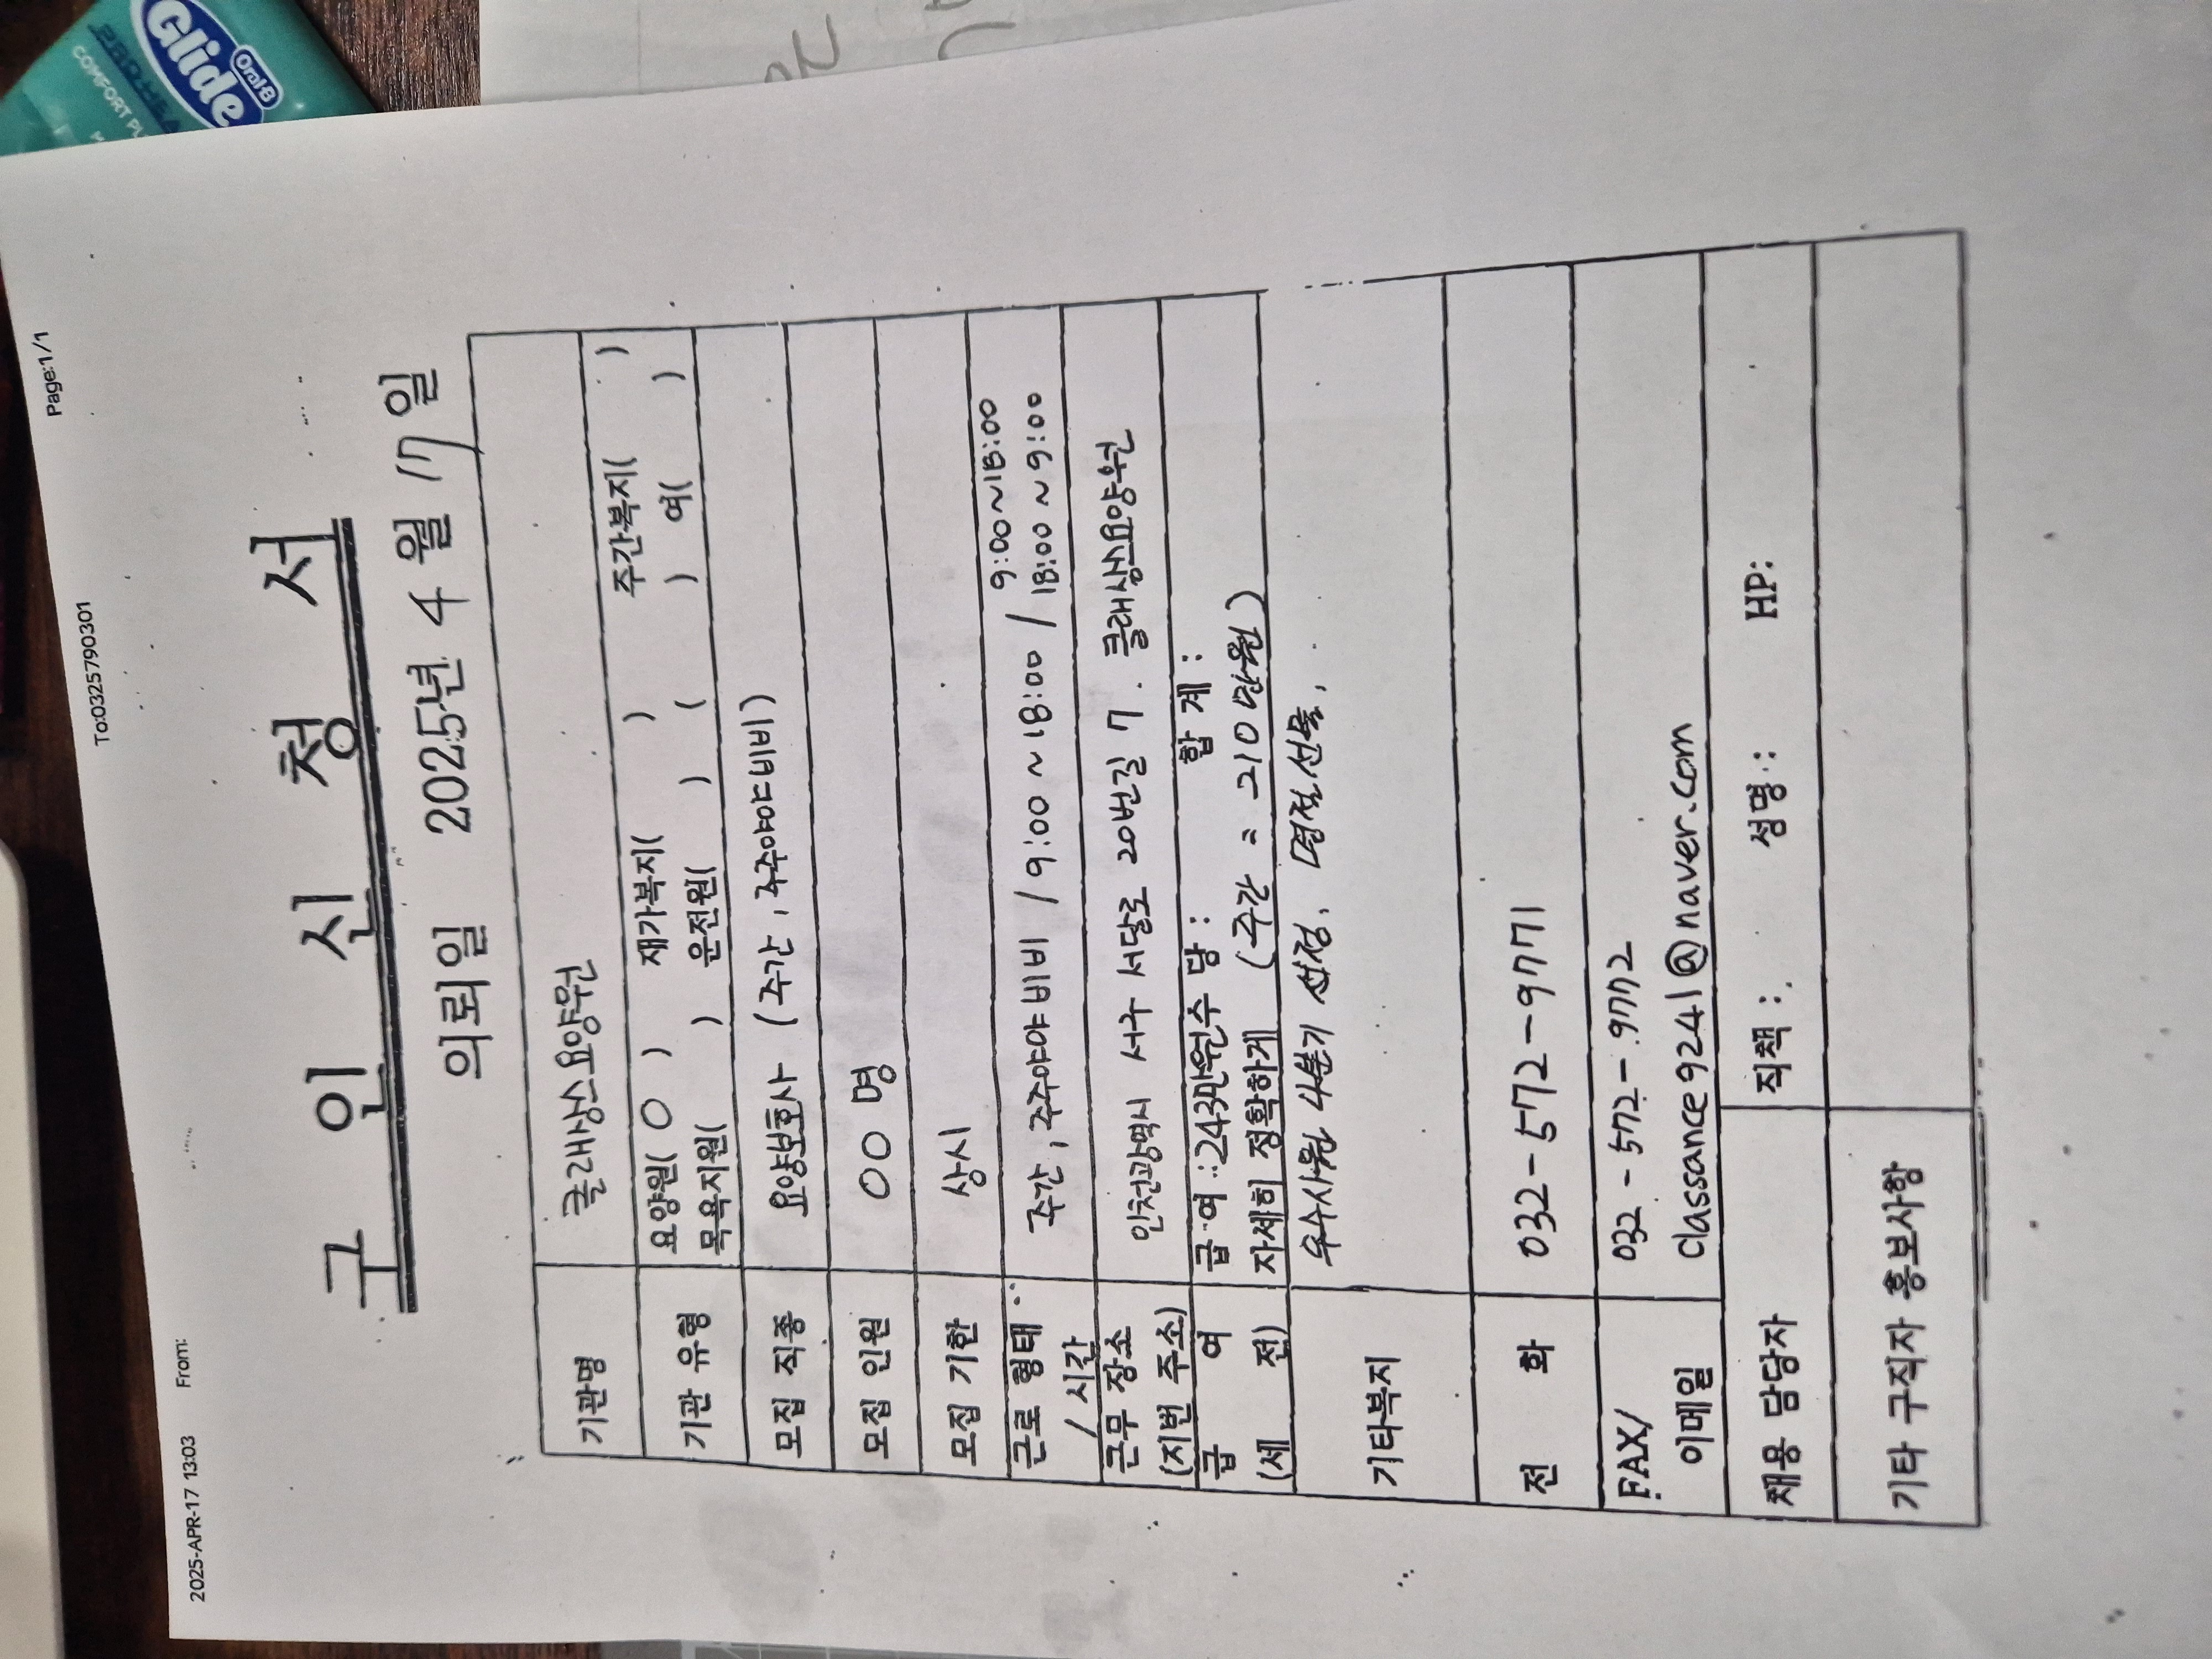 2025-APR-17 13:03 From: To:0325790301 Page:1/1
구 인 신 청 서
의뢰일 2025년 4월 17일
기관명 클래상스요양원
기관 유형 요양원( O ) 재가복지( ) 주간복지( )
목욕지원( ) 운전원( ) ( ) 여( )
모집 직종 요양보호사 (주간, 주주야야비비)
모집 인원 00 명
모집 기한 상시
근로 형태 / 시간 주간, 주주야야비비 / 9:00 ~ 18:00 / 9:00 ~ 18:00
18:00 ~ 9:00
근무 장소 (지번 주소) 인천광역시 서구 서달로 20번길 7. 클래상스요양원
급 여 급 여 : 243만원 수 당 : 합 계 :
(세 전) 자세히 정확하게 (주간 = 210만원)
기타복지 우수사원 4분기 선정, 명절선물,
전 화 032-572-9771
FAX/ 032-572-9772
이메일 classance9241@naver.com
채용 담당자 직책 : 성명 : HP:
기타 구직자 홍보사항
Oral-B
Glide
COMFORT PL